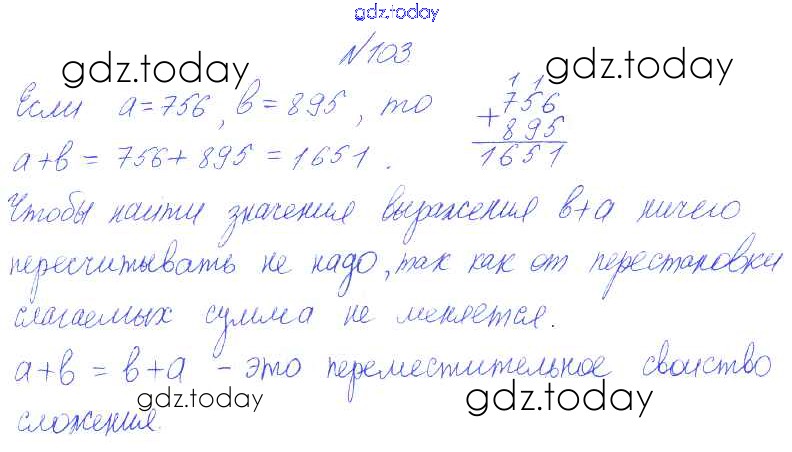 gdz.today
№103
gdz.today gdz.today
Если a=756, в=895, то
a+в = 756+895 = 1651.
1 1
756
+
895
1651
Чтобы найти значения выражения в+а ничего
пересчитывать не надо, так как от перестановки
слагаемых сумма не меняется.
a+в = в+a - это переместительное свойство
сложения.
gdz.today gdz.today